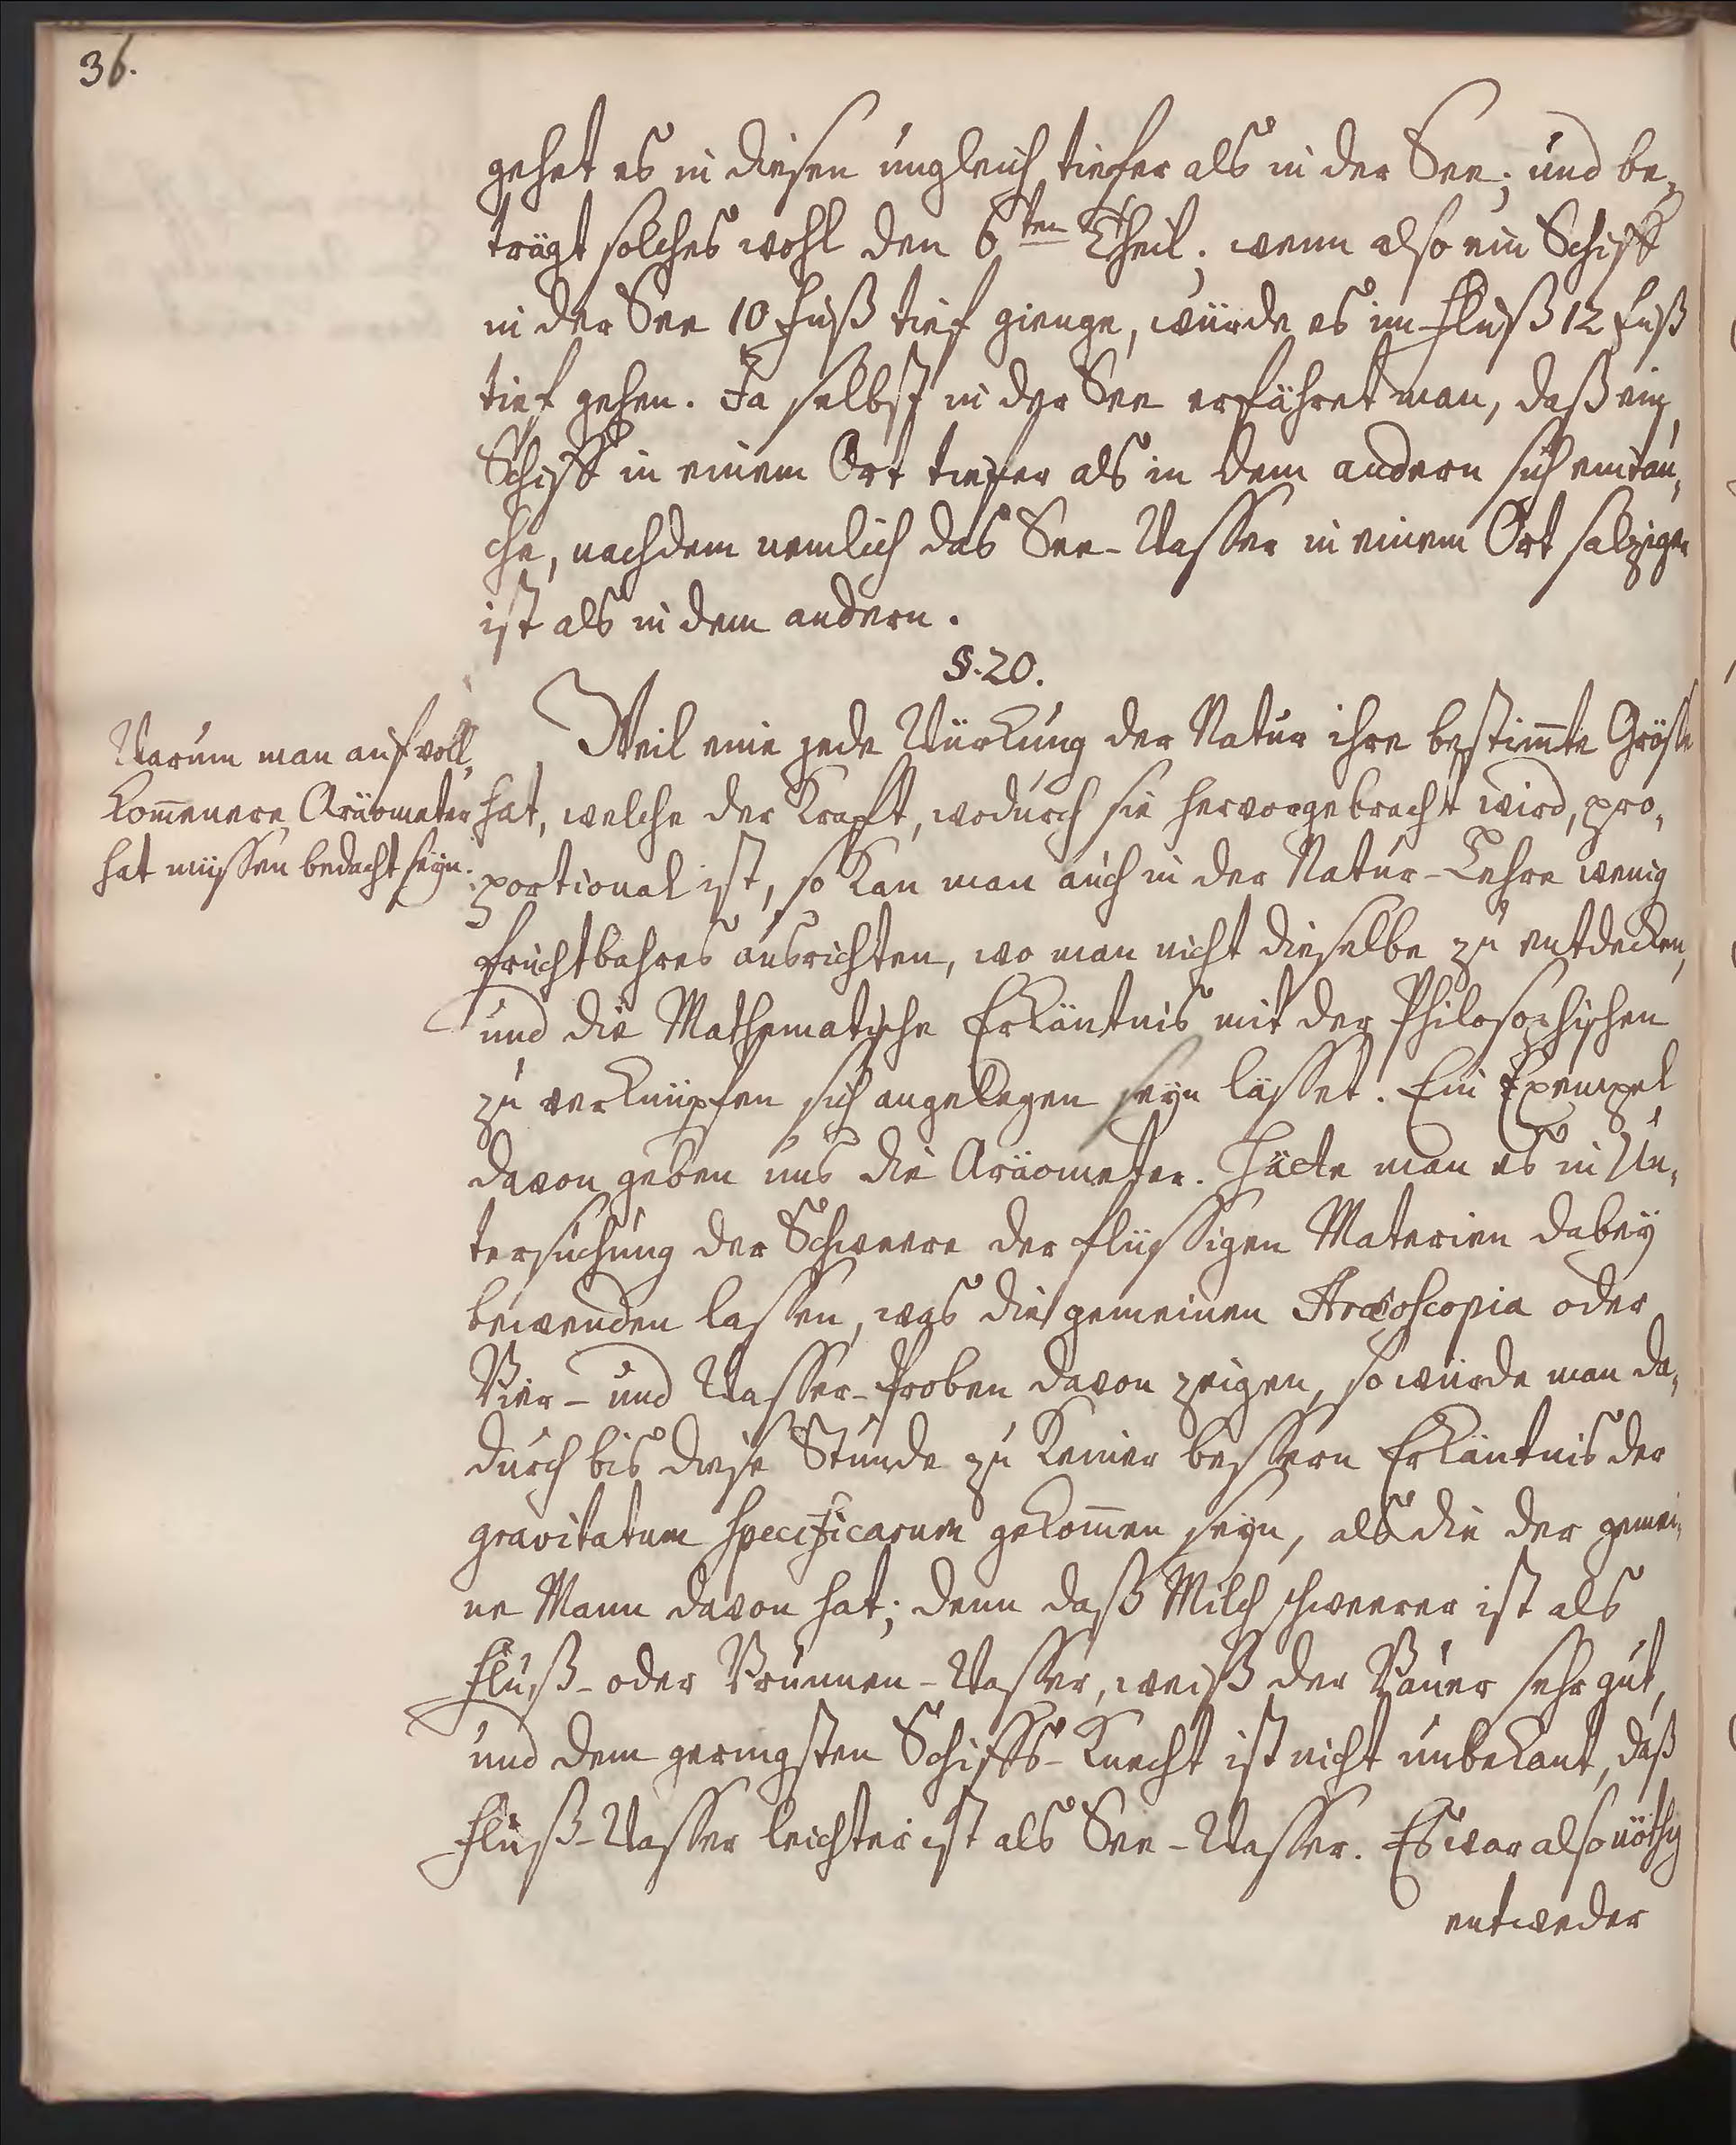 36.
gehet es in diesen ungleich tiefer als in der See; und be-
trägt solches wohl den 6ten Theil; wenn also ein Schiff
in der See 10 Fuß tief gienge, würde es im Fluß 12 Fuß
tief gehen. Ja selbst in der See erfähret man, daß ein
Schiff in einem Ort tiefer als in dem andern sich eintau-
che, nachdem nemlich das See-Wasser in einem Ort salziger
ist als in dem andern.
§. 20.
Warum man auf voll-
kom̄enere Aräometer
hat müssen bedacht seyn.
Weil eine jede Würkung der Natur ihre bestim̄te Grösse
hat, welche der Krafft, wodurch sie hervorgebracht wird, pro-
portional ist, so kan man auch in der Natur-Lehre wenig
fruchtbahres ausrichten, wo man nicht dieselbe zu entdecken,
und die Mathematische Erkäntnis mit der Philosophischen
zu verknüpfen sich angelegen seyn lässet. Ein Exempel
davon geben uns die Aräometer. Hätte man es in Un-
tersuchung der Schweere der flüssigen Materien dabey
bewenden lassen, was die gemeinen Aræoscopia oder
Bier- und Wasser-Proben davon zeigen, so würde man da-
durch bis diese Stunde zu keiner bessern Erkäntnis der
gravitatum specificarum gekom̄en seyn, als die der gemei-
ne Mann davon hat; denn daß Milch schweerer ist als
Fluß- oder Brunnen-Wasser, weiß der Bauer sehr gut,
und dem geringsten Schiffs-Knecht ist nicht unbekant, daß
Fluß-Wasser leichter ist als See-Wasser. Es war also nöthig
entweder